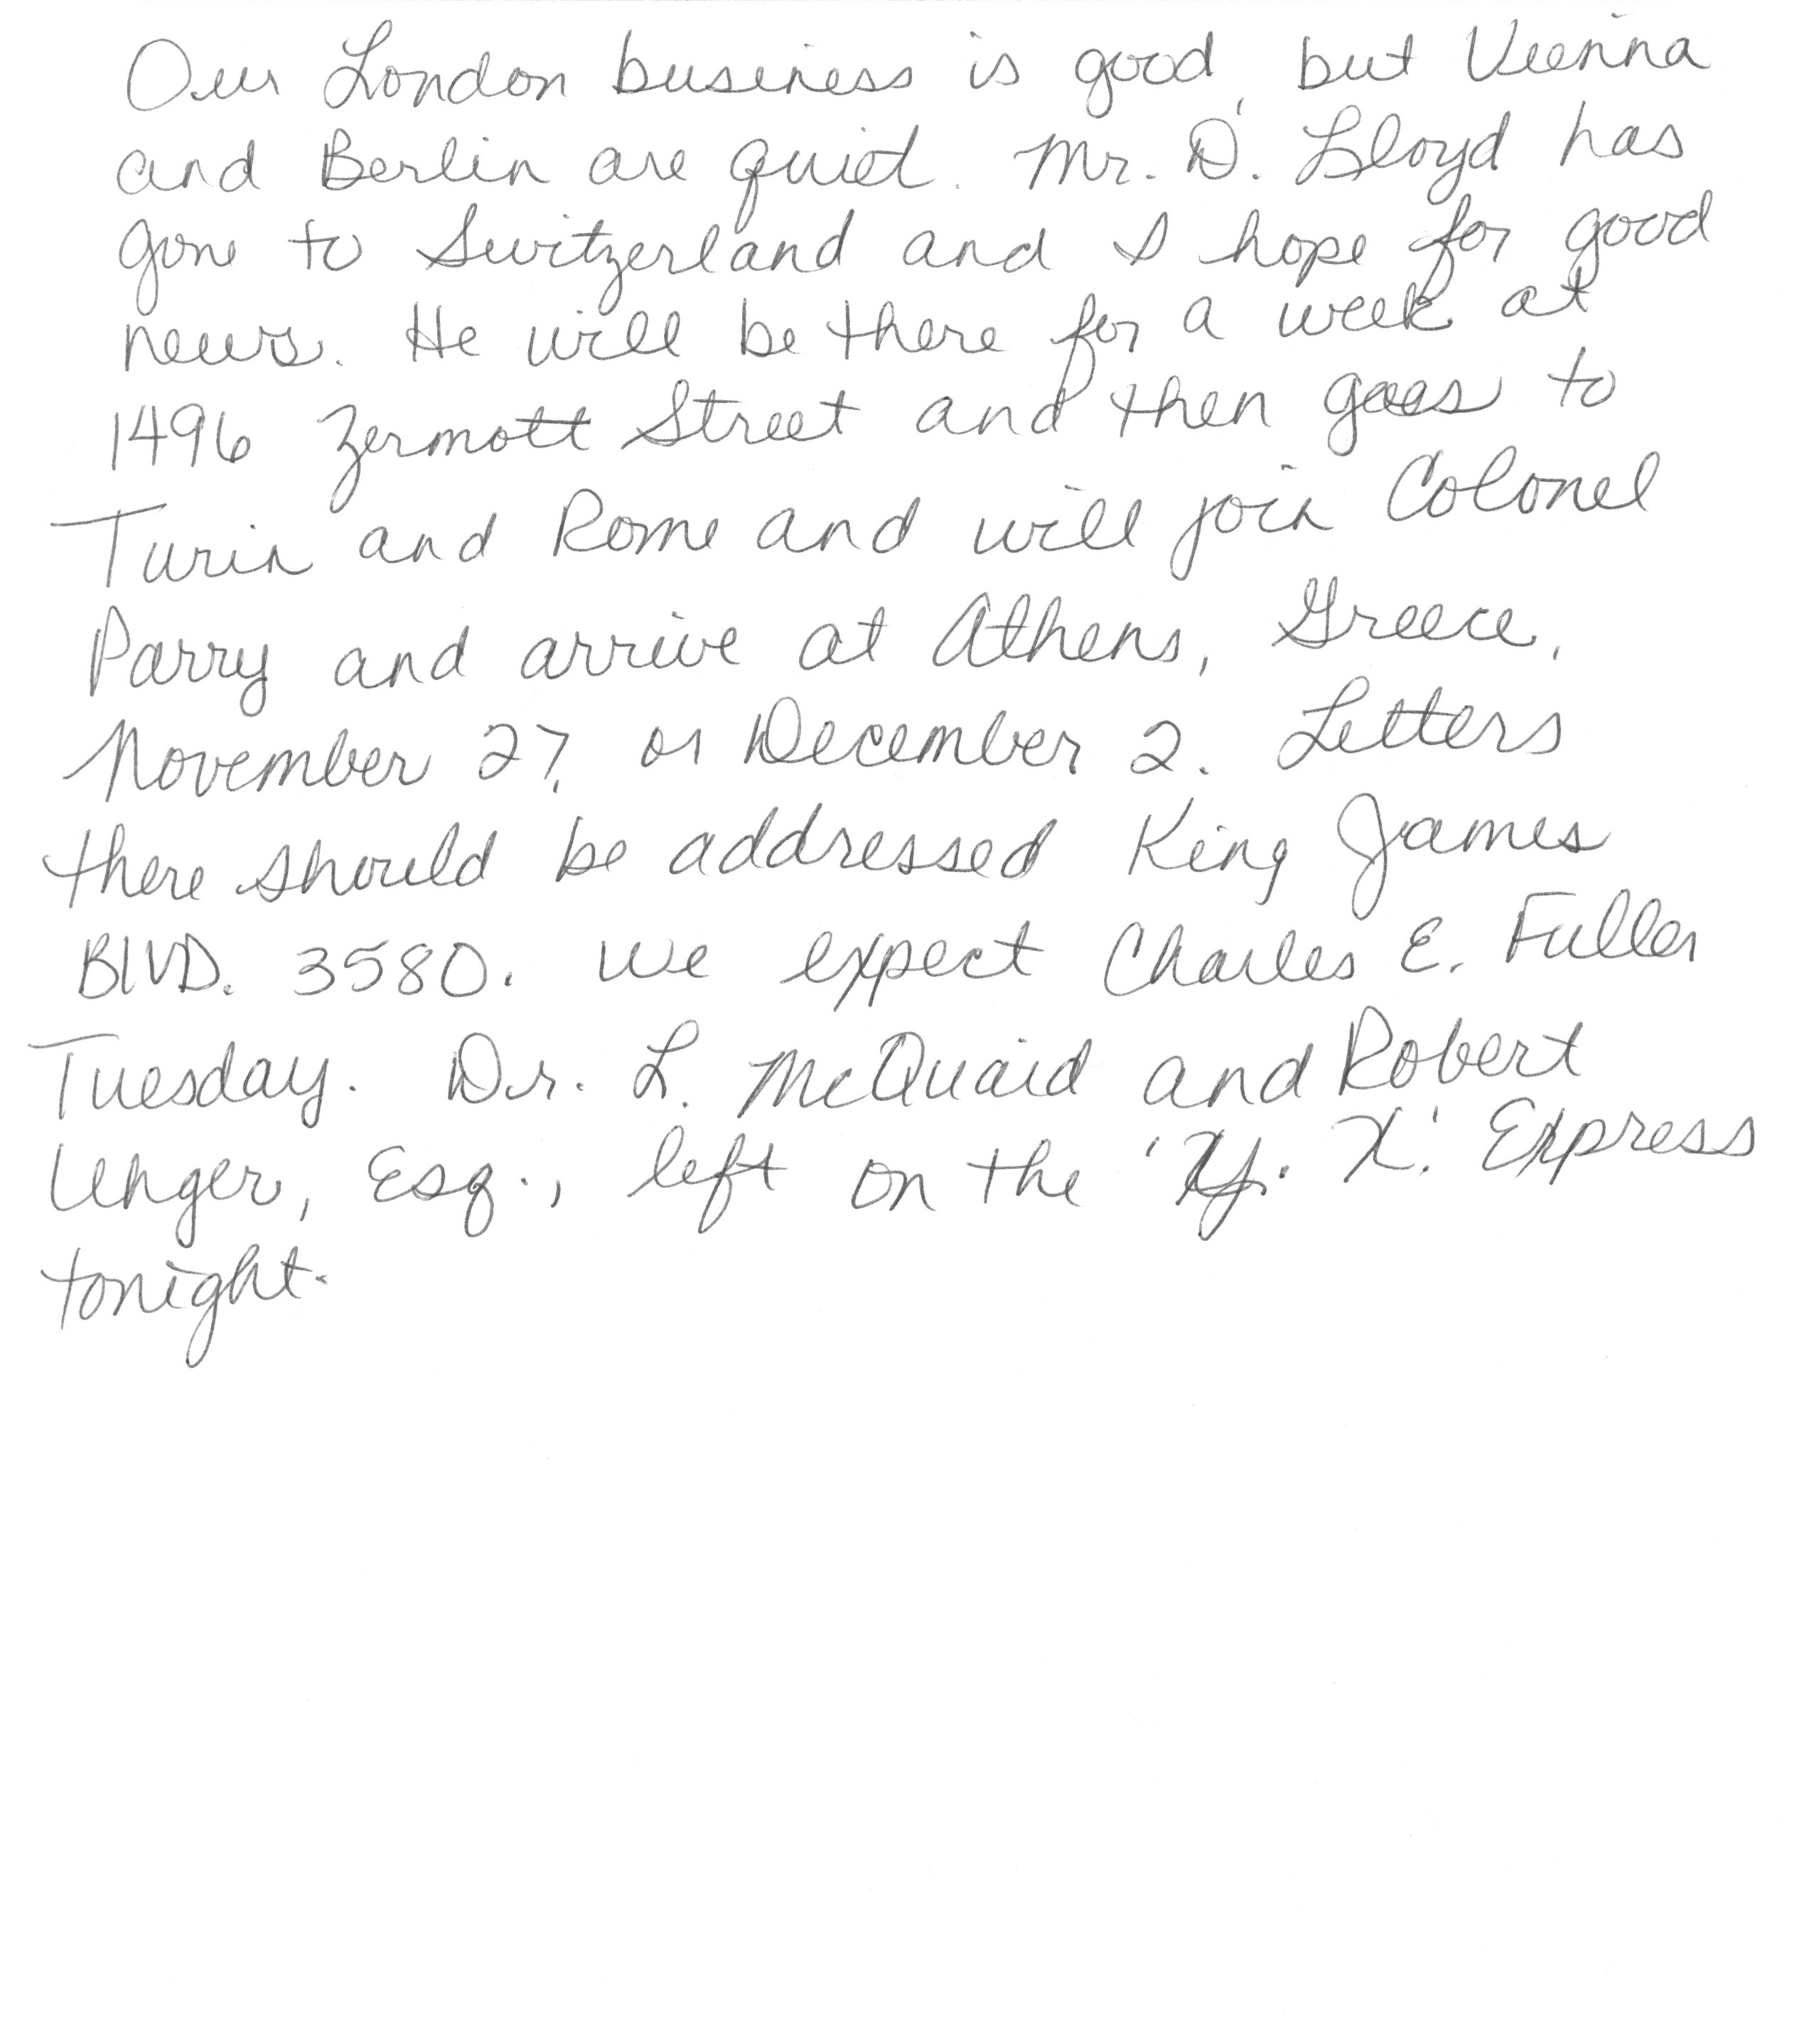 Our London business is good, but Vienna
and Berlin are quiet. Mr. D. Lloyd has
gone to Switzerland and I hope for good
news. He will be there for a week at
1496 Zermott Street and then goes to
Turin and Rome and will join Colonel
Parry and arrive at Athens, Greece,
November 27, or December 2. Letters
there should be addressed King James
BLVD. 3580. We expect Charles E. Fuller
Tuesday. Dr. L. McQuaid and Robert
Unger, Esq., left on the 'Y. X.' Express
tonight.